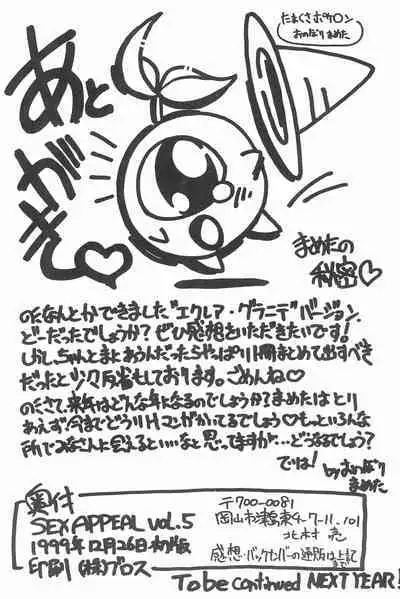 たまぐさポケロン
おのなりまめた
あとがき♡
まめたの
秘密♡
のだなんとかできました"エクレア・グラニテ"バージョン.
どーだったでしょうか?ぜひ感想をいただきたいです!
しかし、ちゃんとまとめるんだったらやっぱり1冊まとめて出すべき
だったと少々反省もしております。ごめんね♡
のてさて、来年はどんな年になるのでしょうか?まめたはとり
あえず今までどうりHマンガかいてるでしょう♡もっといろんな
所でみなさんに会えるといい…なと思ってますが…どうなるでしょう?
では!
by おのなり
まめた
奥付
SEX APPEAL VOL.5
1999年12月26日初版
印刷(株)グロス
〒700-0081
岡山市津島東4-7-11.101
北村 亮
感想・バックナンバーの通販は上記
まで
To be continued NEXT YEAR!